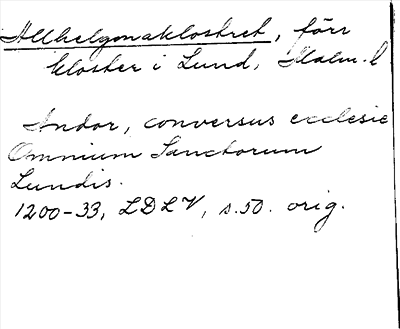 Allhelgonaklostret, förr
kloster i Lund, Malm. l
Andor, conversus ecclesie
Omnium Sanctorum
Lundis.
1200-33, LDLV, s.50. orig.